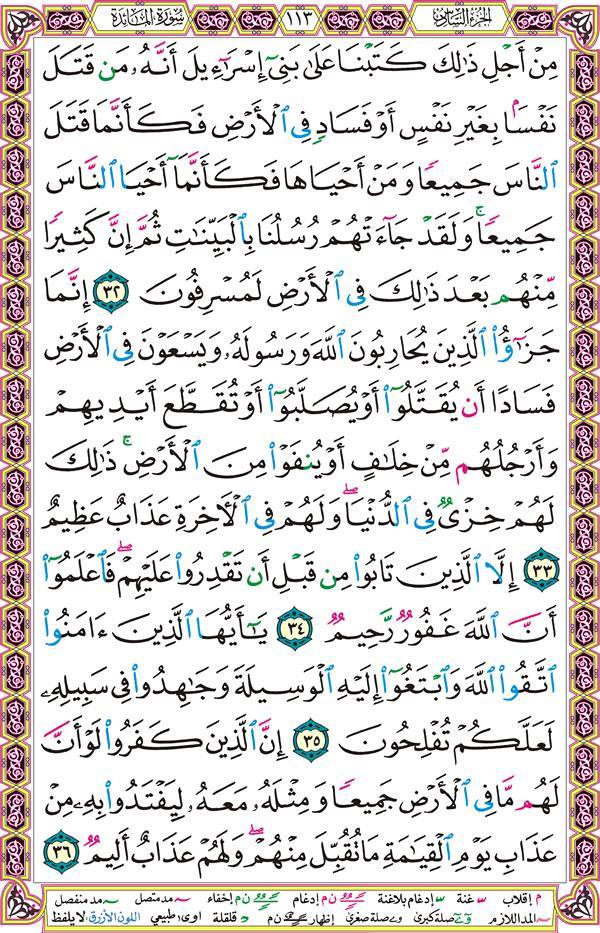 الجزء السادس ١١٣ سورة المائدة
مِنْ أَجْلِ ذَٰلِكَ كَتَبْنَا عَلَىٰ بَنِىٓ إِسْرَٰٓءِيلَ أَنَّهُۥ مَن قَتَلَ
نَفْسَۢا بِغَيْرِ نَفْسٍ أَوْ فَسَادٍ فِى ٱلْأَرْضِ فَكَأَنَّمَا قَتَلَ
ٱلنَّاسَ جَمِيعًا وَمَنْ أَحْيَاهَا فَكَأَنَّمَآ أَحْيَا ٱلنَّاسَ
جَمِيعًا ۚ وَلَقَدْ جَآءَتْهُمْ رُسُلُنَا بِٱلْبَيِّنَٰتِ ثُمَّ إِنَّ كَثِيرًا
مِّنْهُم بَعْدَ ذَٰلِكَ فِى ٱلْأَرْضِ لَمُسْرِفُونَ ٣٢ إِنَّمَا
جَزَٰٓؤُا۟ ٱلَّذِينَ يُحَارِبُونَ ٱللَّهَ وَرَسُولَهُۥ وَيَسْعَوْنَ فِى ٱلْأَرْضِ
فَسَادًا أَن يُقَتَّلُوٓا۟ أَوْ يُصَلَّبُوٓا۟ أَوْ تُقَطَّعَ أَيْدِيهِمْ
وَأَرْجُلُهُم مِّنْ خِلَٰفٍ أَوْ يُنفَوْا۟ مِنَ ٱلْأَرْضِ ۚ ذَٰلِكَ
لَهُمْ خِزْىٌ فِى ٱلدُّنْيَا ۖ وَلَهُمْ فِى ٱلْأَخِرَةِ عَذَابٌ عَظِيمٌ
٣٣ إِلَّا ٱلَّذِينَ تَابُوا۟ مِن قَبْلِ أَن تَقْدِرُوا۟ عَلَيْهِمْ ۖ فَٱعْلَمُوٓا۟
أَنَّ ٱللَّهَ غَفُورٌ رَّحِيمٌ ٣٤ يَٰٓأَيُّهَا ٱلَّذِينَ ءَامَنُوا۟
ٱتَّقُوا۟ ٱللَّهَ وَٱبْتَغُوٓا۟ إِلَيْهِ ٱلْوَسِيلَةَ وَجَٰهِدُوا۟ فِى سَبِيلِهِۦ
لَعَلَّكُمْ تُفْلِحُونَ ٣٥ إِنَّ ٱلَّذِينَ كَفَرُوا۟ لَوْ أَنَّ
لَهُم مَّا فِى ٱلْأَرْضِ جَمِيعًا وَمِثْلَهُۥ مَعَهُۥ لِيَفْتَدُوا۟ بِهِۦ مِنْ
عَذَابِ يَوْمِ ٱلْقِيَٰمَةِ مَا تُقُبِّلَ مِنْهُمْ ۖ وَلَهُمْ عَذَابٌ أَلِيمٌ ٣٦
م إقلاب غنة إدغام بلاغنة ن م إدغام ن م إخفاء مد متصل مد منفصل
المد اللازم صلة كبرى صلة صغرى إظهار ن م قلقلة اوى طبيعي اللون الأزرق: لا يلفظ